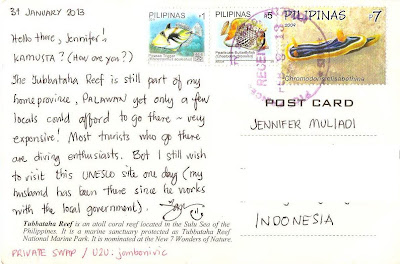 31 JANUARY 2013
Hello there, Jennifer!
KAMUSTA? (How are you?)
The Tubbataha Reef is still part of my
home province, PALAWAN yet only a few
locals could afford to go there – very
expensive! Most tourists who go there
are diving enthusiasts. But I still wish
to visit this UNESCO site one day (my
husband has been there since he works
with the local government).
Tubbataha Reef is an atoll coral reef located in the Sulu Sea of the
Philippines. It is a marine sanctuary protected as Tubbataha Reef
National Marine Park. It is nominated at the New 7 Wonders of Nature.
PRIVATE SWAP / U2U: jambonivic
PILIPINAS
1
PILIPINAS
5
PILIPINAS
7
2004
Chromodoris elisabethina
POST CARD
JENNIFER MULIADI
INDONESIA